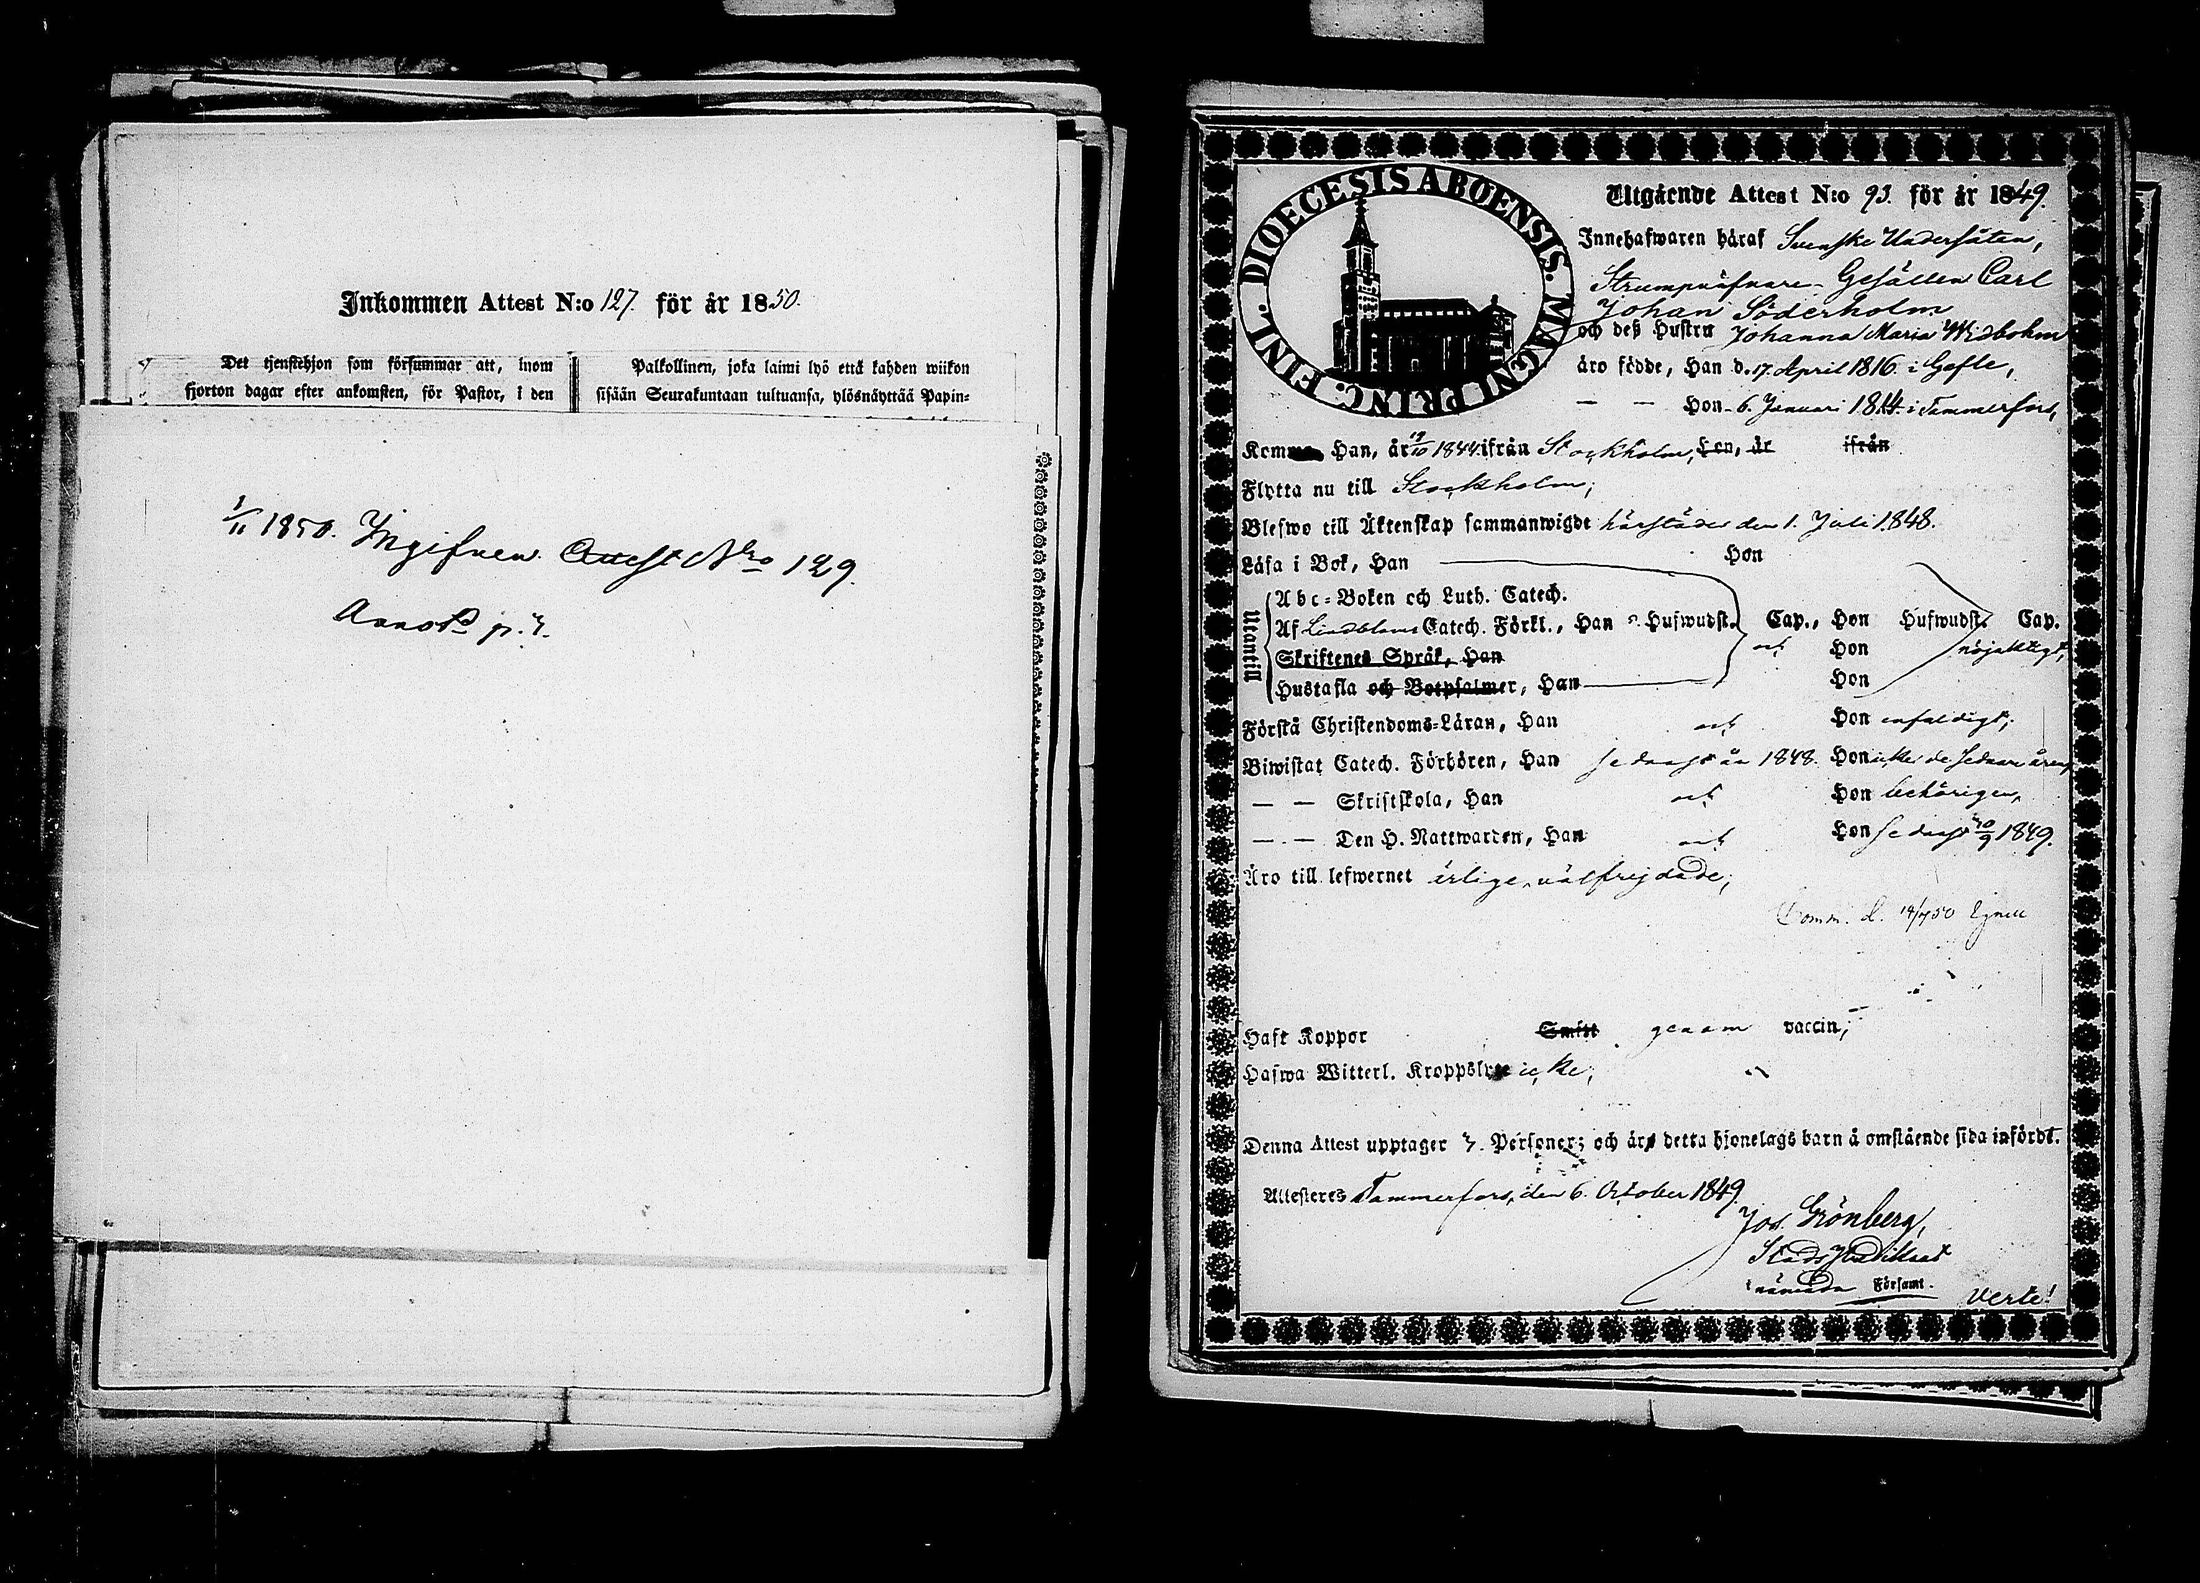 Inkommen Attest N:o 127. för år 1850.
Det tjenstehjon som försummar att, inom
fjorton dagar efter ankomsten, för Pastor, i den
Palkollinen, joka laimi lyö että kahden wiikon
sisään Seurakuntaan tultuansa, ylösnäyttää Papin=
1/11 1850. Ingifven Attest Nro 129.
Annot. p. 7.
FINL. DIOECESIS ABOENSIS. MAGNI PRINC.
Utgående Attest N:o 93. för år 1849.
Innehafwaren häraf Svenske Undersåten,
Strumpväfvare-Gesällen Carl
Johan Söderholm
och deß Hustru Johanna Maria Widbohm
äro födde, Han d. 17. April 1816. i Gefle,
— — Hon 6. Januari 1814. i Tammerfors,
Komm Han, år 19/10 1844. ifrån Stockholm, Hon, år ifrån
Flytta nu till Stockholm;
Blefwo till Äktenskap sammanwigde härstädes den 1. Juli 1848.
Läsa i Bok, Han Hon
Utantill
Abc=Boken och Luth. Catech.
Af Lindbloms Catech. Förkl., Han 2. Hufwudst. Cap., Hon Hufwudst. Cap.
Skriftenes Språk, Han och Hon nöjaktigt,
Hustafla och Botpsalmer, Han Hon
Förstå Christendoms=Läran, Han och Hon enfaldigt;
Biwistat Catech. Förhören, Han sednast år 1848. Hon icke de sednare åren,
— — Skriftskola, Han och Hon behörigen,
— — Den H. Nattwarden, Han och Hon sednast 30/9 1849.
Äro till lefwernet ärlige, välfrejdade;
Comm. d. 14/7 50
Haft Koppor Smitt genom vaccin;
Hafwa Witterl. Kroppslyte icke;
Denna Attest upptager 3. Personer; och äro detta hjonelags barn å omstående sida infördt.
Attesteres Tammerfors, den 6. October 1849.
Jos. Grönberg,
i nämnda Församl.
Verte!